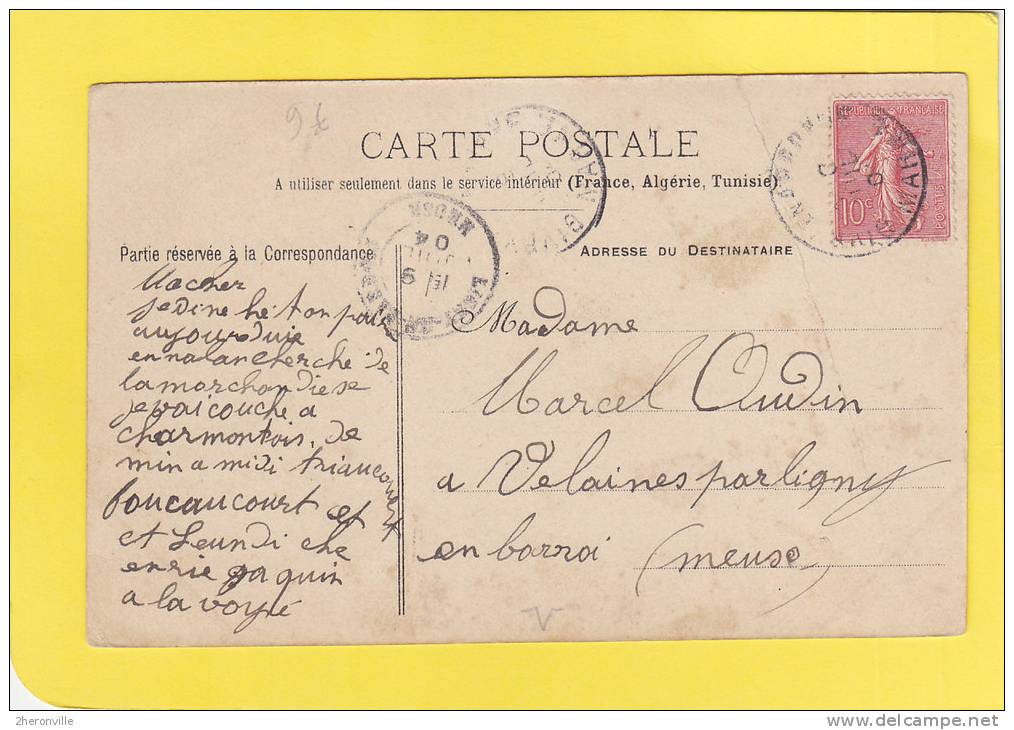 CARTE POSTALE
A utiliser seulement dans le service intérieur (France, Algérie, Tunisie).
Partie réservée à la Correspondance
ADRESSE DU DESTINATAIRE
REPUBLIQUE FRANÇAISE
10c
POSTES
MEUSE
04
Macher
je dine hé ton pai
aujourduie
en nalan cherche de
la marchandiese
je vai couche a
charmontois. de
min a midi triaucourt
foucaucourt et
et Leundi che
enrie ja quin
a la voyie
Madame
Marcel Oudin
a Velaines par ligny
en barroi (meuse)
2heronville
www.delcampe.net